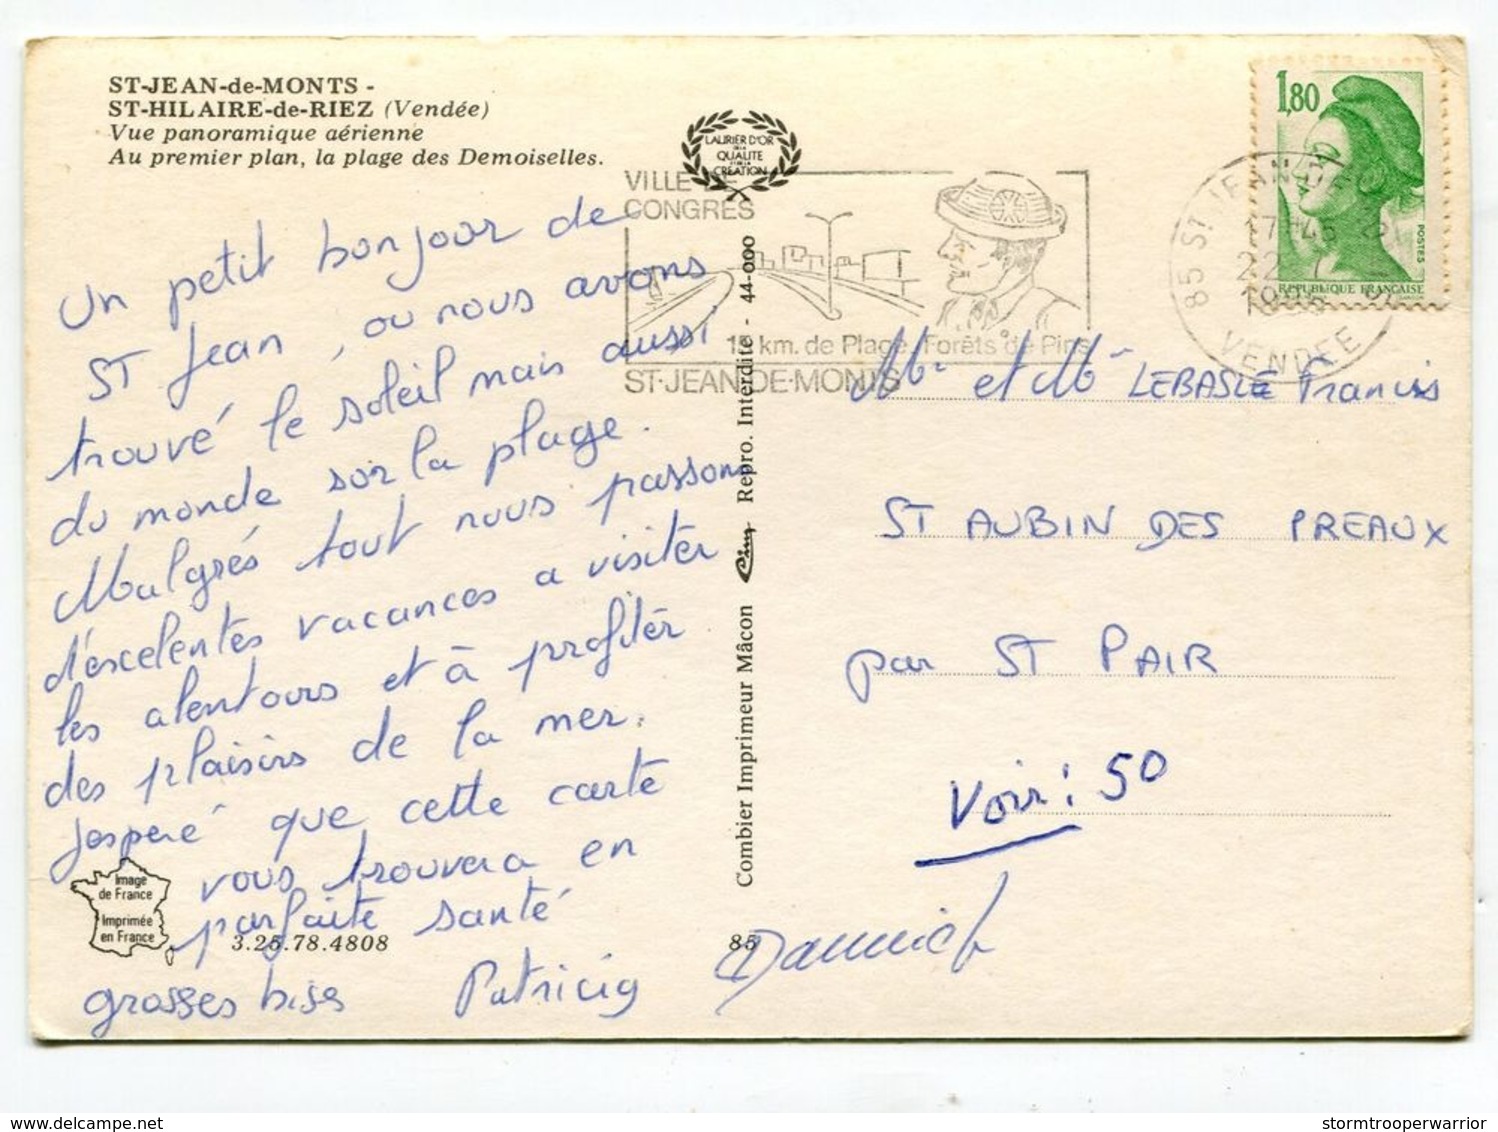 ST-JEAN-de-MONTS -
ST-HILAIRE-de-RIEZ (Vendée)
Vue panoramique aérienne
Au premier plan, la plage des Demoiselles.
LAURIER D'OR
DE LA
QUALITE
ET DE LA
CREATION
1,80
POSTES
REPUBLIQUE FRANÇAISE
VILLE DE
CONGRES
15 km. de Plage, Forêts de Pins
ST-JEAN-DE-MONTS
85 ST JEAN DE
17H45
22-7
VENDEE
Un petit bonjour de
ST Jean, ou nous avons
trouvé le soleil mais aussi
du monde sur la plage.
Malgrés tout nous passons
d'excelentes vacances a visiter
les alentours et à profiter
des plaisirs de la mer.
J'esperé que cette carte
vous trouvera en
parfaite santé
grosses bises Patricia Dannick
Image
de France
Imprimée
en France
3.25.78.4808
85
Combier Imprimeur Mâcon Cim Repro. Interdite - 44-000
Mr et Me LEBASLE Francis
ST AUBIN DES PREAUX
par ST PAIR
Voir: 50
delcampe.net
stormtrooperwarrior